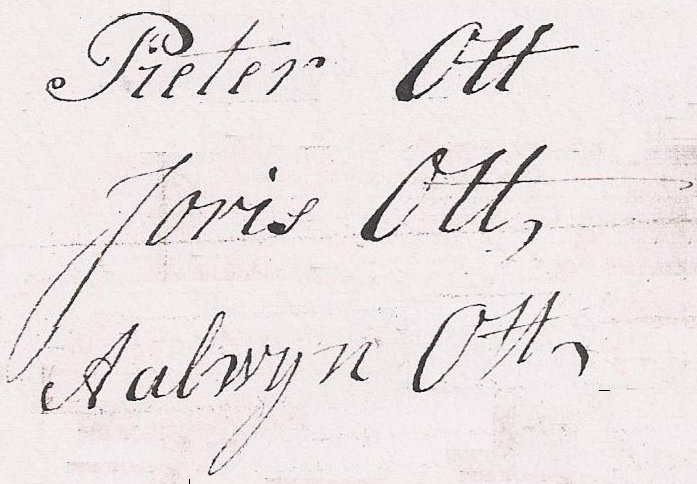 Pieter Ott
Joris Ott,
Aalwyn Ott,